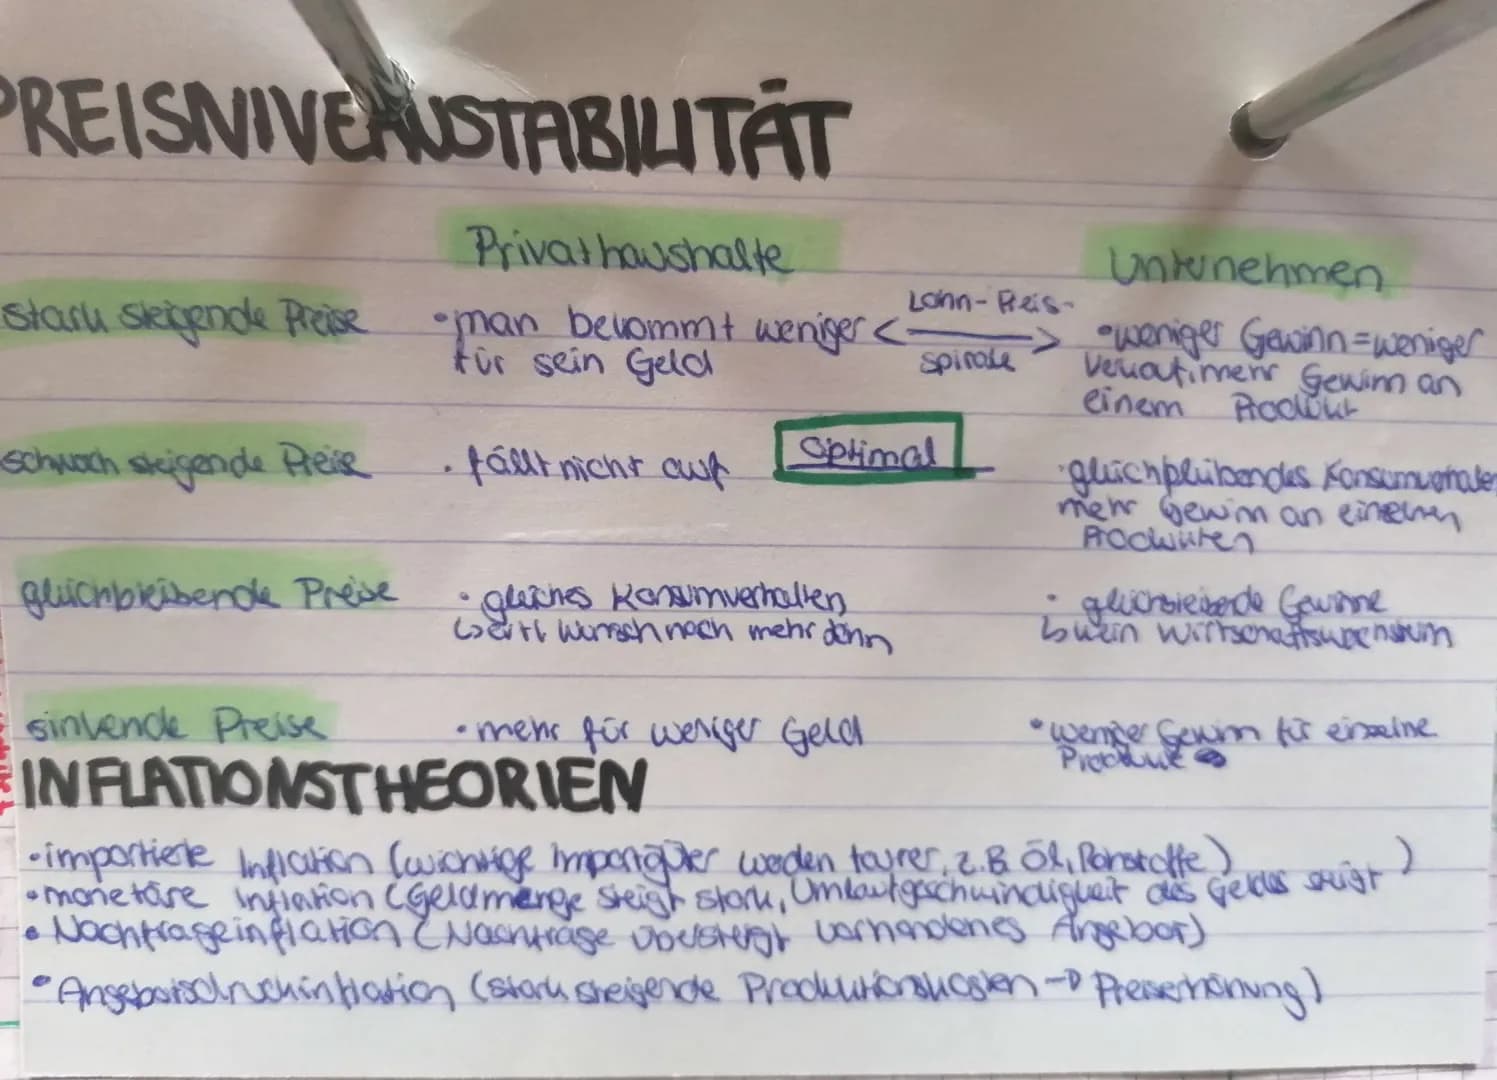 PREISNIVEAUSTABILITÄT
Privathaushalte
Unternehmen
stark steigende Preise
• man bekommt weniger
für sein Geld
Lohn-Preis-
spirale
• weniger Gewinn = weniger
Verkauf, mehr Gewinn an
einem Produkt
schwach steigende Preise
• fällt nicht auf
Optimal
• gleichbleibendes Konsumverhalten
mehr Gewinn an einzelnen
Produkten
gleichbleibende Preise
• gleiches Konsumverhalten
↳ evtl. Wunsch nach mehr dann
• gleichbleibende Gewinne
↳ kein Wirtschaftswachstum
sinkende Preise
• mehr für weniger Geld
• weniger Gewinn für einzelne
Produkte
INFLATIONSTHEORIEN
• importierte Inflation (wichtige Importgüter werden teurer, z.B. Öl, Rohstoffe)
• monetäre Inflation (Geldmenge steigt stark, Umlaufgeschwindigkeit des Geldes steigt)
• Nachfrageinflation (Nachfrage übersteigt vorhandenes Angebot)
• Angebotsdruckinflation (stark steigende Produktionskosten → Preiserhöhung)